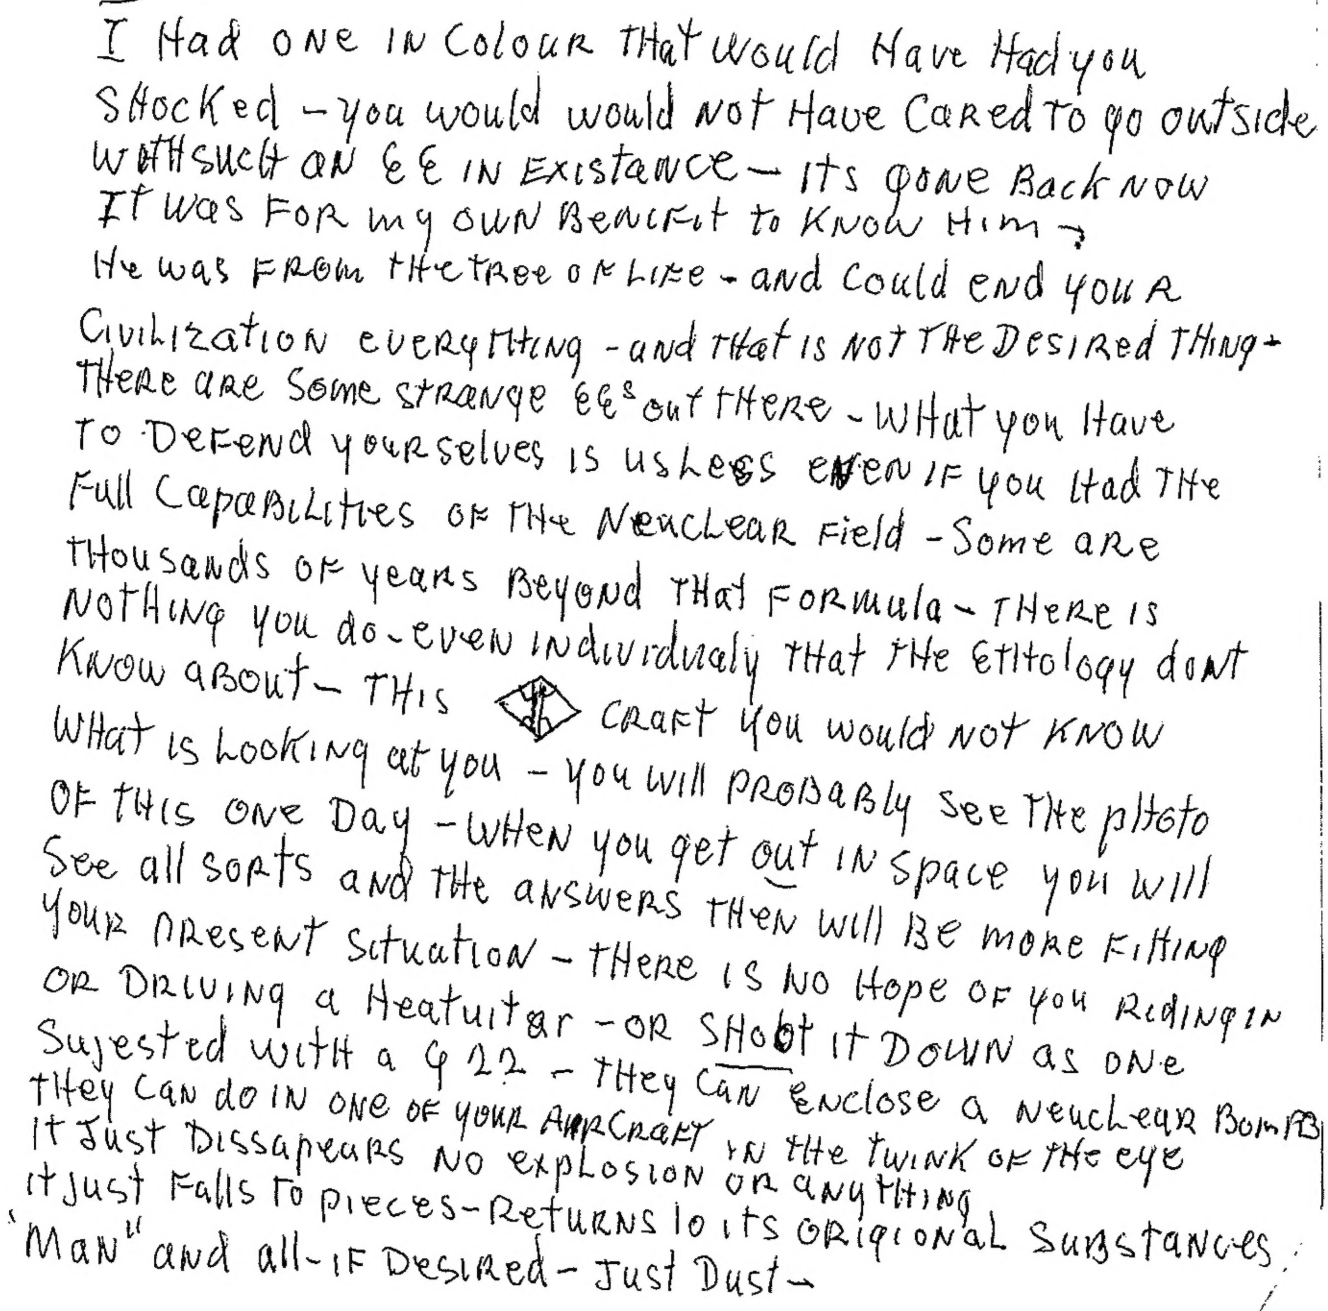 I Had ONE IN Colour THat would Have Had you
SHocked - you would would Not Have Cared To go outside
with such an EE IN Existance - its gone Back NOW
It was For my own Benefit to Know Him -
He was From the Tree of Life - and Could end your
Civilization everything - and THat is Not The Desired Thing -
There are Some strange EEs out there - what you Have
To Defend yourselves is usless even IF you Had The
Full Capabilities of the Neuclear Field - Some are
Thousands of years Beyond That Formula - There is
Nothing you do - even individualy that the Etitology dont
Know about - This craft you would Not Know
What is Looking at you - you will probably see the photo
Of this one Day - when you get out in space you will
See all sorts and the answers then will Be more Fitting
Your present situation - There is No Hope of you Riding in
or Driving a Heatuitar - or SHoot it Down as one
Sujested with a G 22 - They can enclose a Neuclear Bomb
They can do in one of your Aircraft in the Twink of the eye
It Just Dissapears No explosion or anything
it just Falls to pieces - Returns to its origional Substances
"Man" and all - if Desired - Just Dust -